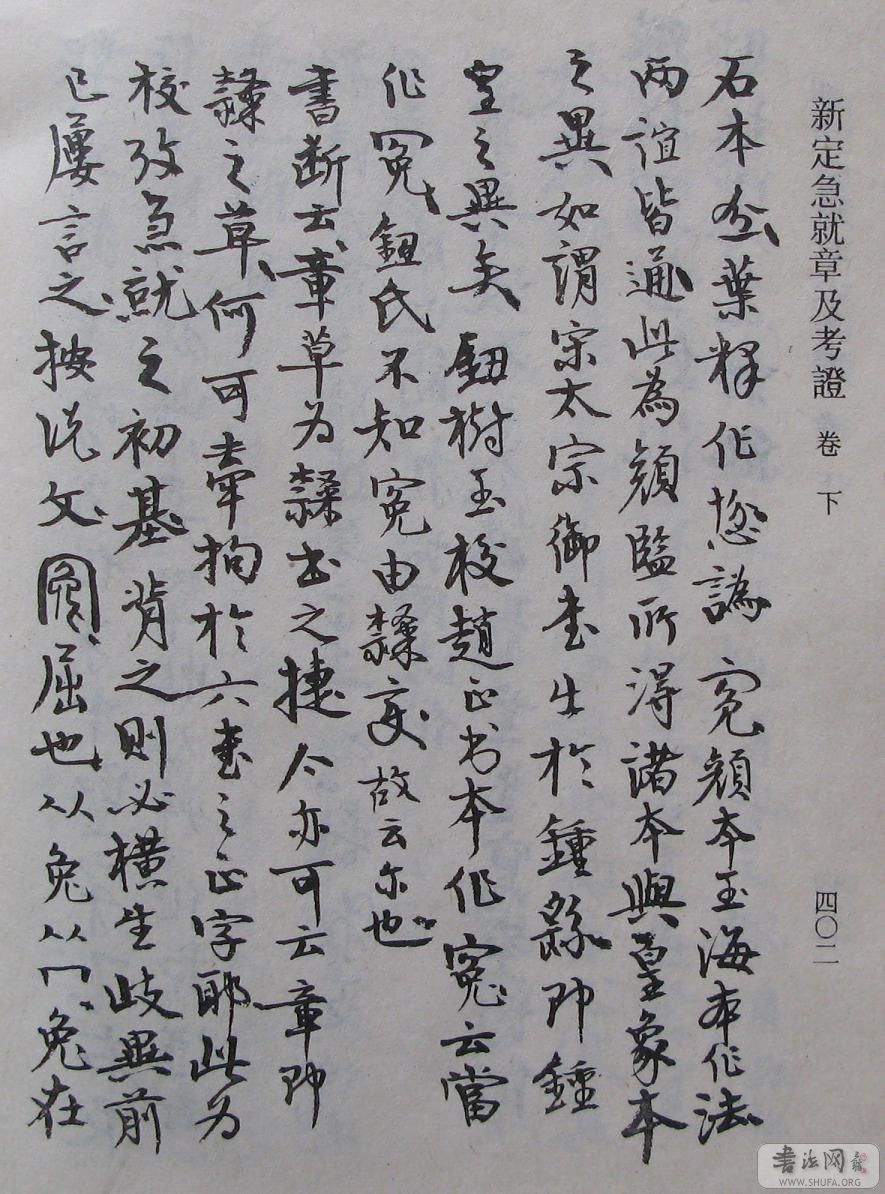 新定急就章及考證 卷下
四〇二
石本 葉釋作 譌 冤顏本玉海本作法
兩誼皆通此為顏監所得諸本與皇象本
之異如謂宗太宗御書出於鍾繇即鍾
皇之異矣鈕樹玉校趙正书本作冤云當
作冤鈕氏不知冤由隸变故云尔也
書断云章草为隸书之捷今亦可云章即
隸之草何可牽拘於六书之正字耶此为
校攷急就之初基背之则必横生歧異前
已屢言之按说文冤屈也从兔从冖兔在
書法网
WWW.SHUFA.ORG